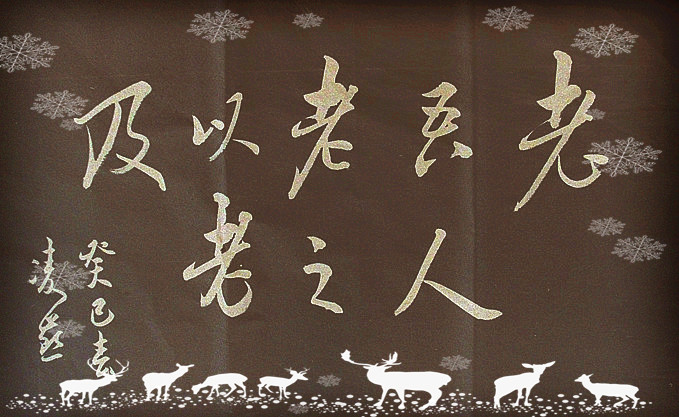 老吾老以及
人之老
癸巳春
凌燕